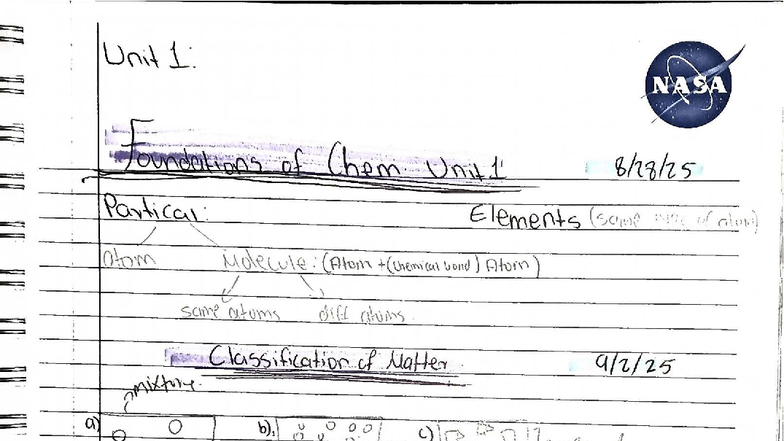 Unit 1:
NASA
Foundations of Chem Unit 1
8/28/25
Partical:
Elements (same type of atom)
atom
Molecule: (Atom + (chemical bond) Atom)
same atoms
diff atoms
Classification of Matter
9/2/25
mixture
a)
b)
c)